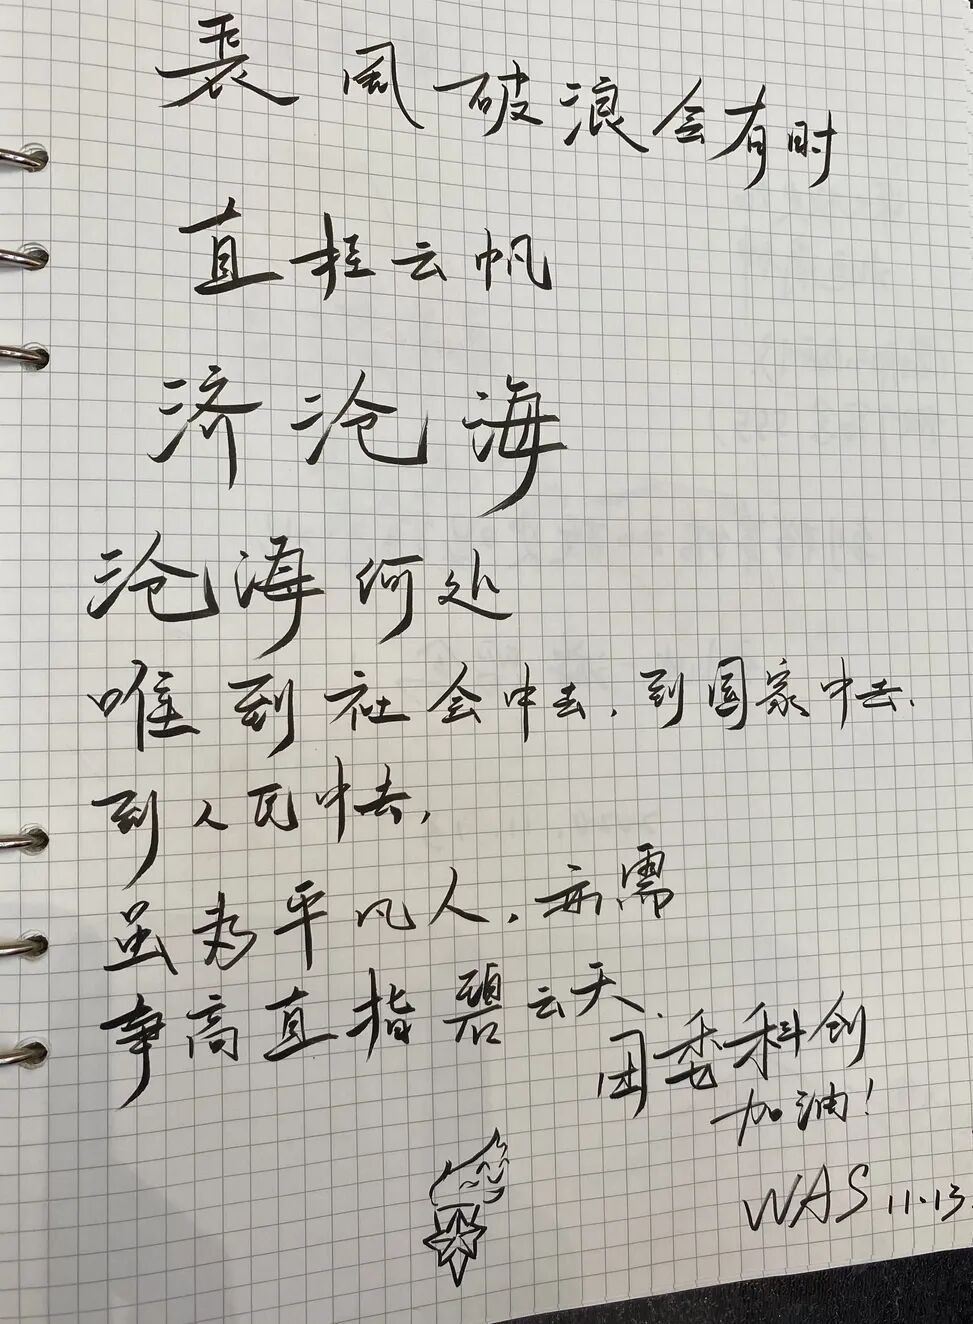 長风破浪会有时
直挂云帆
济沧海
沧海何处
唯到社会中去，到国家中去，
到人民中去，
虽为平凡人，亦需
争高直指碧云天.
团委科创
加油！
WAS 11.13.